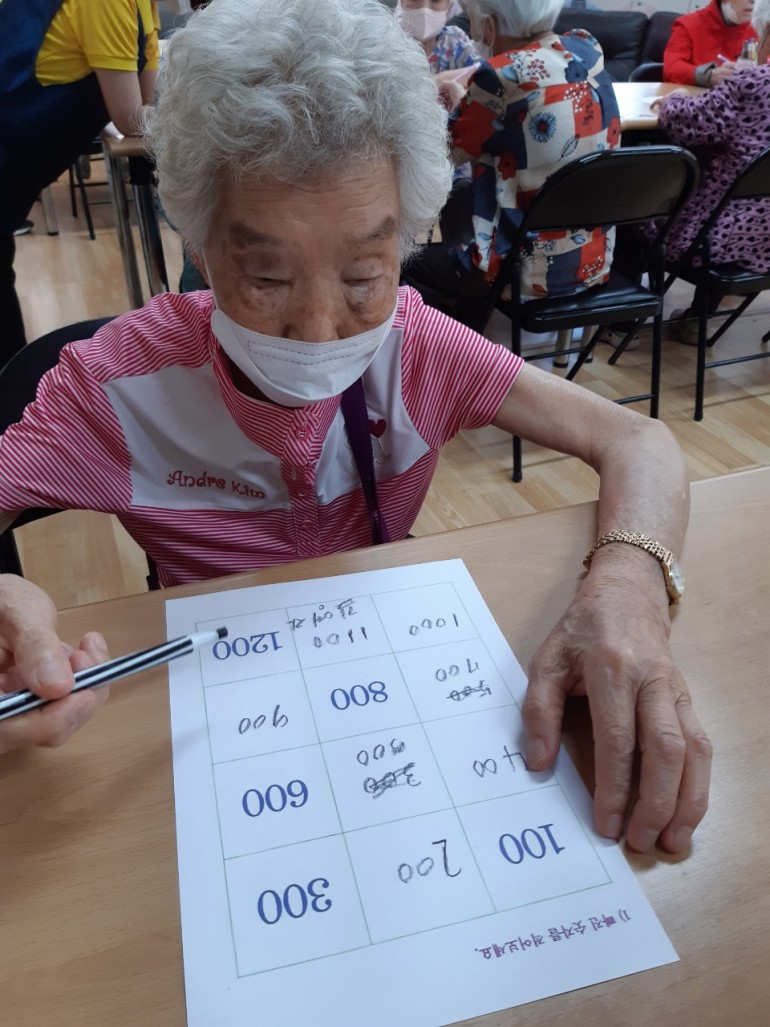 Andre Kim
1) 빠진 숫자를 적어보세요.
100 200 300
400 500 600
700 800 900
1000 1100 1200